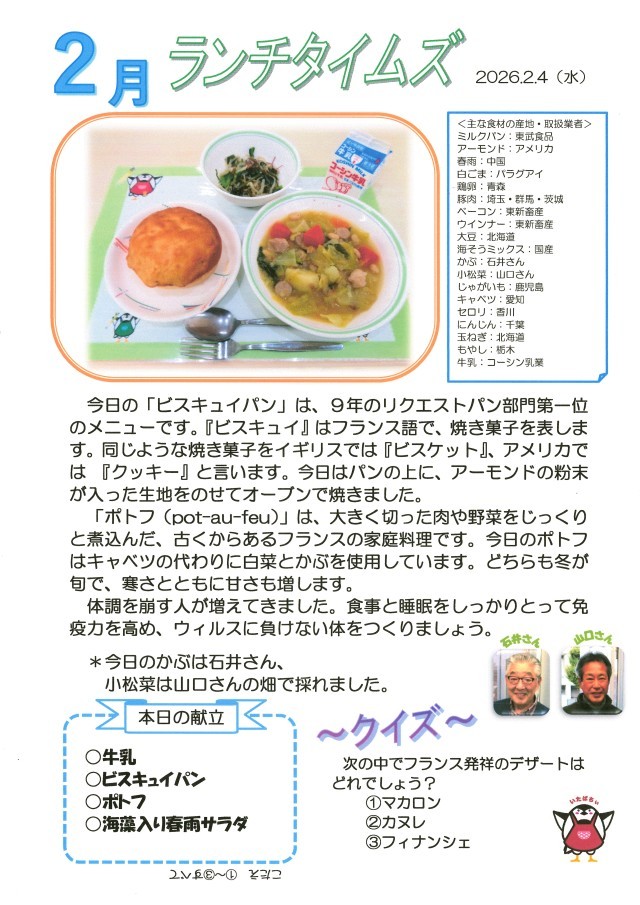 2月 ランチタイムズ 2026.2.4（水）
＜主な食材の産地・取扱業者＞
ミルクパン：東武食品
アーモンド：アメリカ
春雨：中国
白ごま：パラグアイ
鶏卵：青森
豚肉：埼玉・群馬・茨城
ベーコン：東新畜産
ウインナー：東新畜産
大豆：北海道
海そうミックス：国産
かぶ：石井さん
小松菜：山口さん
じゃがいも：鹿児島
キャベツ：愛知
セロリ：香川
にんじん：千葉
玉ねぎ：北海道
もやし：栃木
牛乳：コーシン乳業
コーシン牛乳
今日の「ビスキュイパン」は、９年のリクエストパン部門第一位
のメニューです。『ビスキュイ』はフランス語で、焼き菓子を表しま
す。同じような焼き菓子をイギリスでは『ビスケット』、アメリカで
は 『クッキー』と言います。今日はパンの上に、アーモンドの粉末
が入った生地をのせてオーブンで焼きました。
「ポトフ（pot-au-feu）」は、大きく切った肉や野菜をじっくり
と煮込んだ、古くからあるフランスの家庭料理です。今日のポトフ
はキャベツの代わりに白菜とかぶを使用しています。どちらも冬が
旬で、寒さとともに甘さも増します。
体調を崩す人が増えてきました。食事と睡眠をしっかりとって免
疫力を高め、ウィルスに負けない体をつくりましょう。
＊今日のかぶは石井さん、
小松菜は山口さんの畑で採れました。
石井さん
山口さん
本日の献立
○牛乳
○ビスキュイパン
○ポトフ
○海藻入り春雨サラダ
～クイズ～
次の中でフランス発祥のデザートは
どれでしょう？
①マカロン
②カヌレ
③フィナンシェ
いたばちぃ
こたえ ①～③すべて